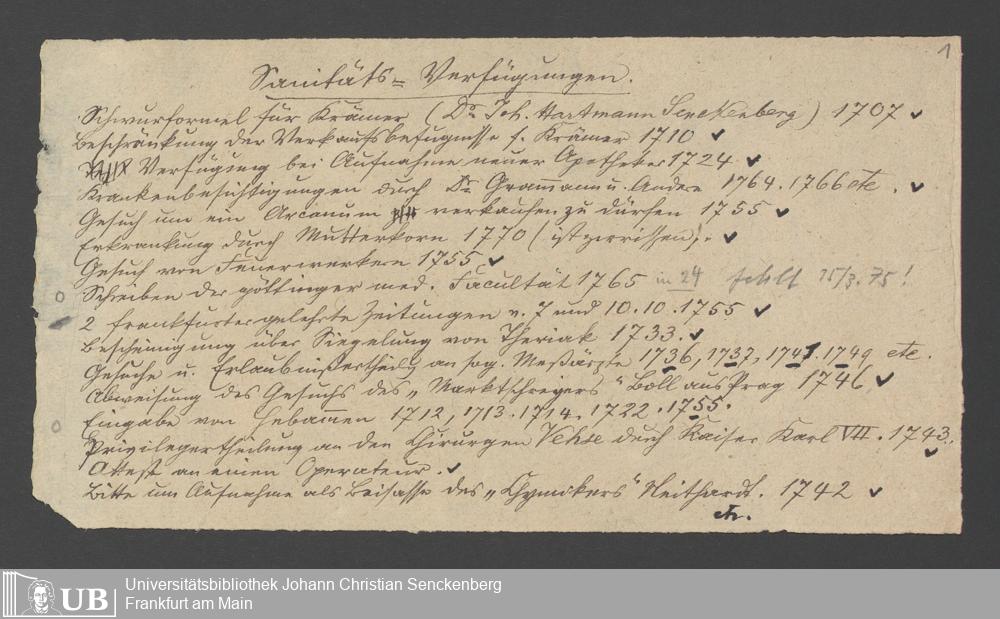 1
Sanitäts-Verfügungen.
Schwurformel für Krämer (Dr. Joh. Hartmann Senckenberg) 1707
Beschränkung der Verkaufsbefugnisse f. Krämer 1710
Verfügung bei Aufnahme neuer Apotheker 1724
Krankenbesichtigungen durch Dr. Grammann u. Andere 1764. 1766 etc.
Gesuch um ein Arcanum verkaufen zu dürfen 1755
Erkrankung durch Mutterkorn 1770 (ist zerrissen!.
Gesuch von Feuerwerkern 1755
Schreiben der göttinger med. Facultät 1765 in 24 fehlt 15/3. 75!
2 frankfurter gelehrte Zeitungen v. 7 und 10.10.1755
Bescheinigung über Siegelung von Theriak 1733.
Gesuche u. Erlaubnißertheilg an sog. Meßärzte 1736, 1737, 1741. 1749 etc.
Abweisung des Gesuchs des "Marktschreiers" Boll aus Prag 1746
Eingabe von Hebammen 1712, 1713. 1714, 1722. 1755.
Privilegertheilung an den Chirurgen Vehse durch Kaiser Karl VII. 1743.
Attest an einen Operateur.
Bitte um Aufnahme als Beisasse des "Chymikers" Neithardt. 1742
etc.
UB
Universitätsbibliothek Johann Christian Senckenberg
Frankfurt am Main